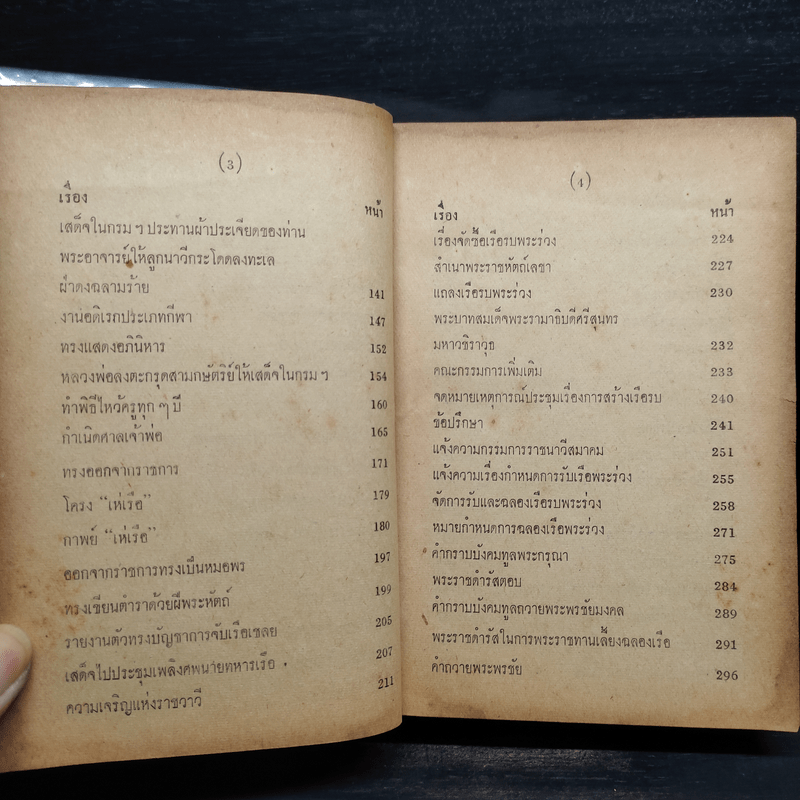 (3)
เรื่อง
หน้า
เสด็จในกรม ฯ ประทานผ้าประเจียดของท่าน
พระอาจารย์ให้ลูกนาวีกระโดดลงทะเล
ฝ่าดงฉลามร้าย 141
งานอดิเรกประเภทกีฬา 147
ทรงแสดงอภินิหาร 152
หลวงพ่อลงตะกรุดสามกษัตริย์ให้เสด็จในกรม ฯ 154
ทำพิธีไหว้ครูทุก ๆ ปี 160
กำเนิดศาลเจ้าพ่อ 165
ทรงออกจากราชการ 171
โครง “เห่เรือ” 179
กาพย์ “เห่เรือ” 180
ออกจากราชการทรงเป็นหมอพร 197
ทรงเขียนตำราด้วยฝีพระหัตถ์ 199
รายงานตัวทรงบัญชาการจับเรือเชลย 205
เสด็จไปประชุมเพลิงศพนายทหารเรือ 207
ความเจริญแห่งราชวาวี 211
(4)
เรื่อง หน้า
เรื่องจัดซื้อเรือรบพระร่วง 224
สำเนาพระราชหัตถ์เลขา 227
แถลงเรือรบพระร่วง 230
พระบาทสมเด็จพระรามาธิบดีศรีสุนทร
มหาวชิราวุธ 232
คณะกรรมการเพิ่มเติม 233
จดหมายเหตุการณ์ประชุมเรื่องการสร้างเรือรบ 240
ข้อปรึกษา 241
แจ้งความกรรมการราชนาวีสมาคม 251
แจ้งความเรื่องกำหนดการรับเรือพระร่วง 255
จัดการรับและฉลองเรือรบพระร่วง 258
หมายกำหนดการฉลองเรือพระร่วง 271
คำกราบบังคมทูลพระกรุณา 275
พระราชดำรัสตอบ 284
คำกราบบังคมทูลถวายพระพรชัยมงคล 289
พระราชดำรัสในการพระราชทานเลี้ยงฉลองเรือ 291
คำถวายพระพรชัย 296